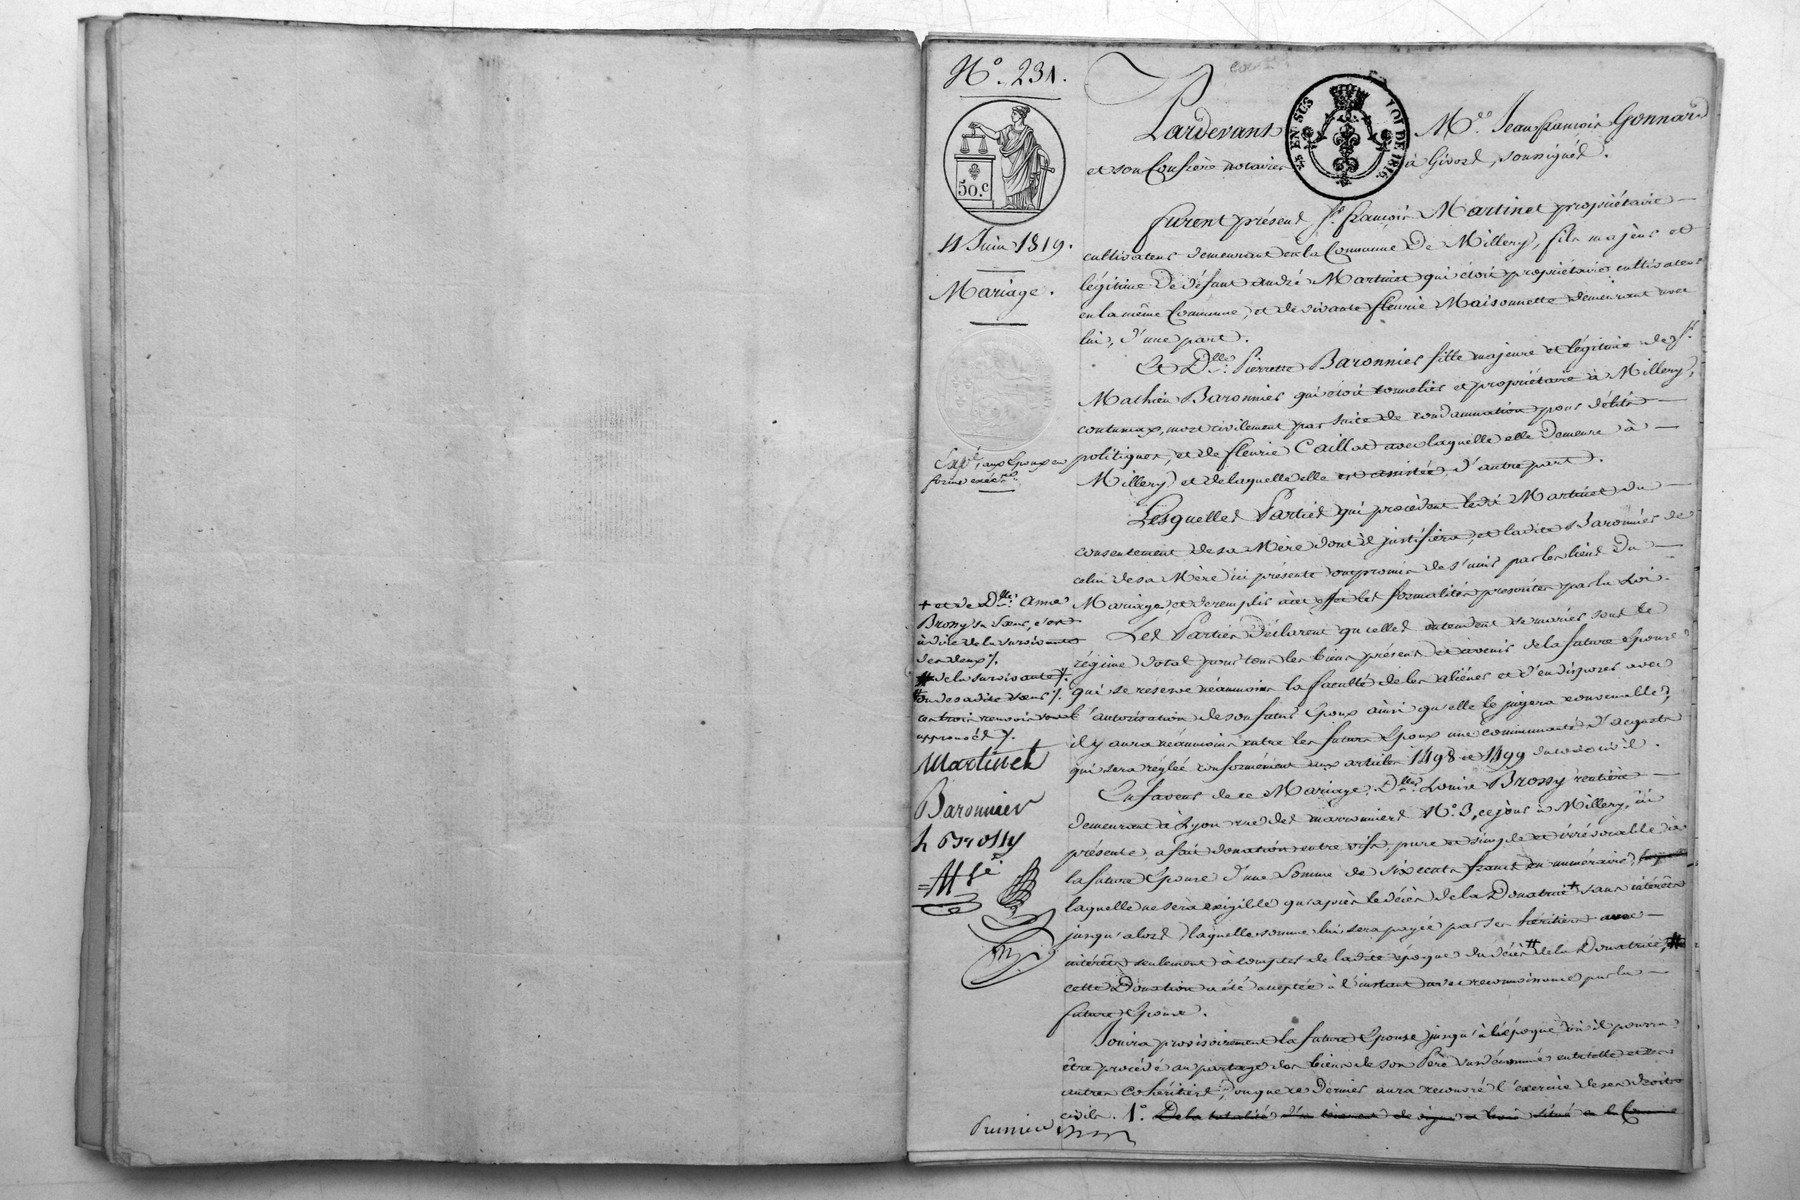 N.º 231.
50.c
EN SUS
LOI DE 1816.
Pardevant M.e Jean françois Gonnard
et son Confrère notaires à Givors, soussignés.
furent présens s.r françois Martinet propriétaire
cultivateur demeurant en la Commune de Millery, fils majeur et
légitime de défunt andré Martinet qui étoit propriétaire cultivateur
en la même Commune, et de vivante fleurie Maisonnette demeurant avec
lui, d'une part.
Et D.lle Pierrette Baronnier fille majeure et légitime de s.r
Mathieu Baronnier qui étoit tonnelier et propriétaire à Millery,
contumax, mort civilement par suite de condamnation pour délits
politiques, et de fleurie Caillat avec laquelle elle demeure à
Millery et de laquelle elle est assistée, d'autre part.
Lesquelles Parties qui procèdent ledit Martinet du
consentement de sa Mère dont il justifiera, et ladite Baronnier de
celui de sa Mère ici présente ont promis de s'unir par les liens du
Mariage, et de remplir à cet effet les formalités prescrites par la Loi.
Les Parties déclarent qu'elles entendent se marier sous le
régime dotal pour tous les biens présens et avenir de la future Epouse
qui se reserve néanmoins la faculté de les aliéner et d'en disposer avec
l'autorisation de son futur Epoux ainsi qu'elle le jugera convenable,
il y aura néanmoins entre les futurs Epoux une communauté d'acquets
qui sera réglée conformément aux articles 1498 et 1499 du code civil.
En faveur de ce Mariage D.lle Louise Brossy rentière
demeurant à Lyon rue des marronniers N.º 3, ce jour à Millery, ici
présente, a fait donation entre vifs, pure et simple et irrévocable à
la future Epouse d'une Somme de six cents francs en numéraire,
laquelle ne sera exigible qu'après le décès de la Donatrice + sans intérêts
jusqu'alors, laquelle somme lui sera payée par ses héritiers avec
intérêts seulement à compter de ladite époque du décès # de la Donatrice, #
cette Donation a été acceptée à l'instant avec reconnoissance par la
future Epouse.
Jouira provisoirement la future Epouse jusqu'à l'époque où il pourra
être procédé au partage des biens de son Père susdénommé entr'elle et ses
autres cohéritiers, ou que ce dernier aura recouvré l'exercice de ses droits
civils. 1.º De la totalité d'un tènement de vigne et bois situé à la Commune
4 Juin 1819.
Mariage.
Exp.é aux Epoux en
forme exéc.re
+ et de D.lle Anne
Brossy sa sœur, c'est
à dire de la survivante
des deux /.
# de la survivante /.
# ou de sadite sœur /.
ces trois renvois sont
approuvés /.
Martinet
Baronnier
L Brossy
premier